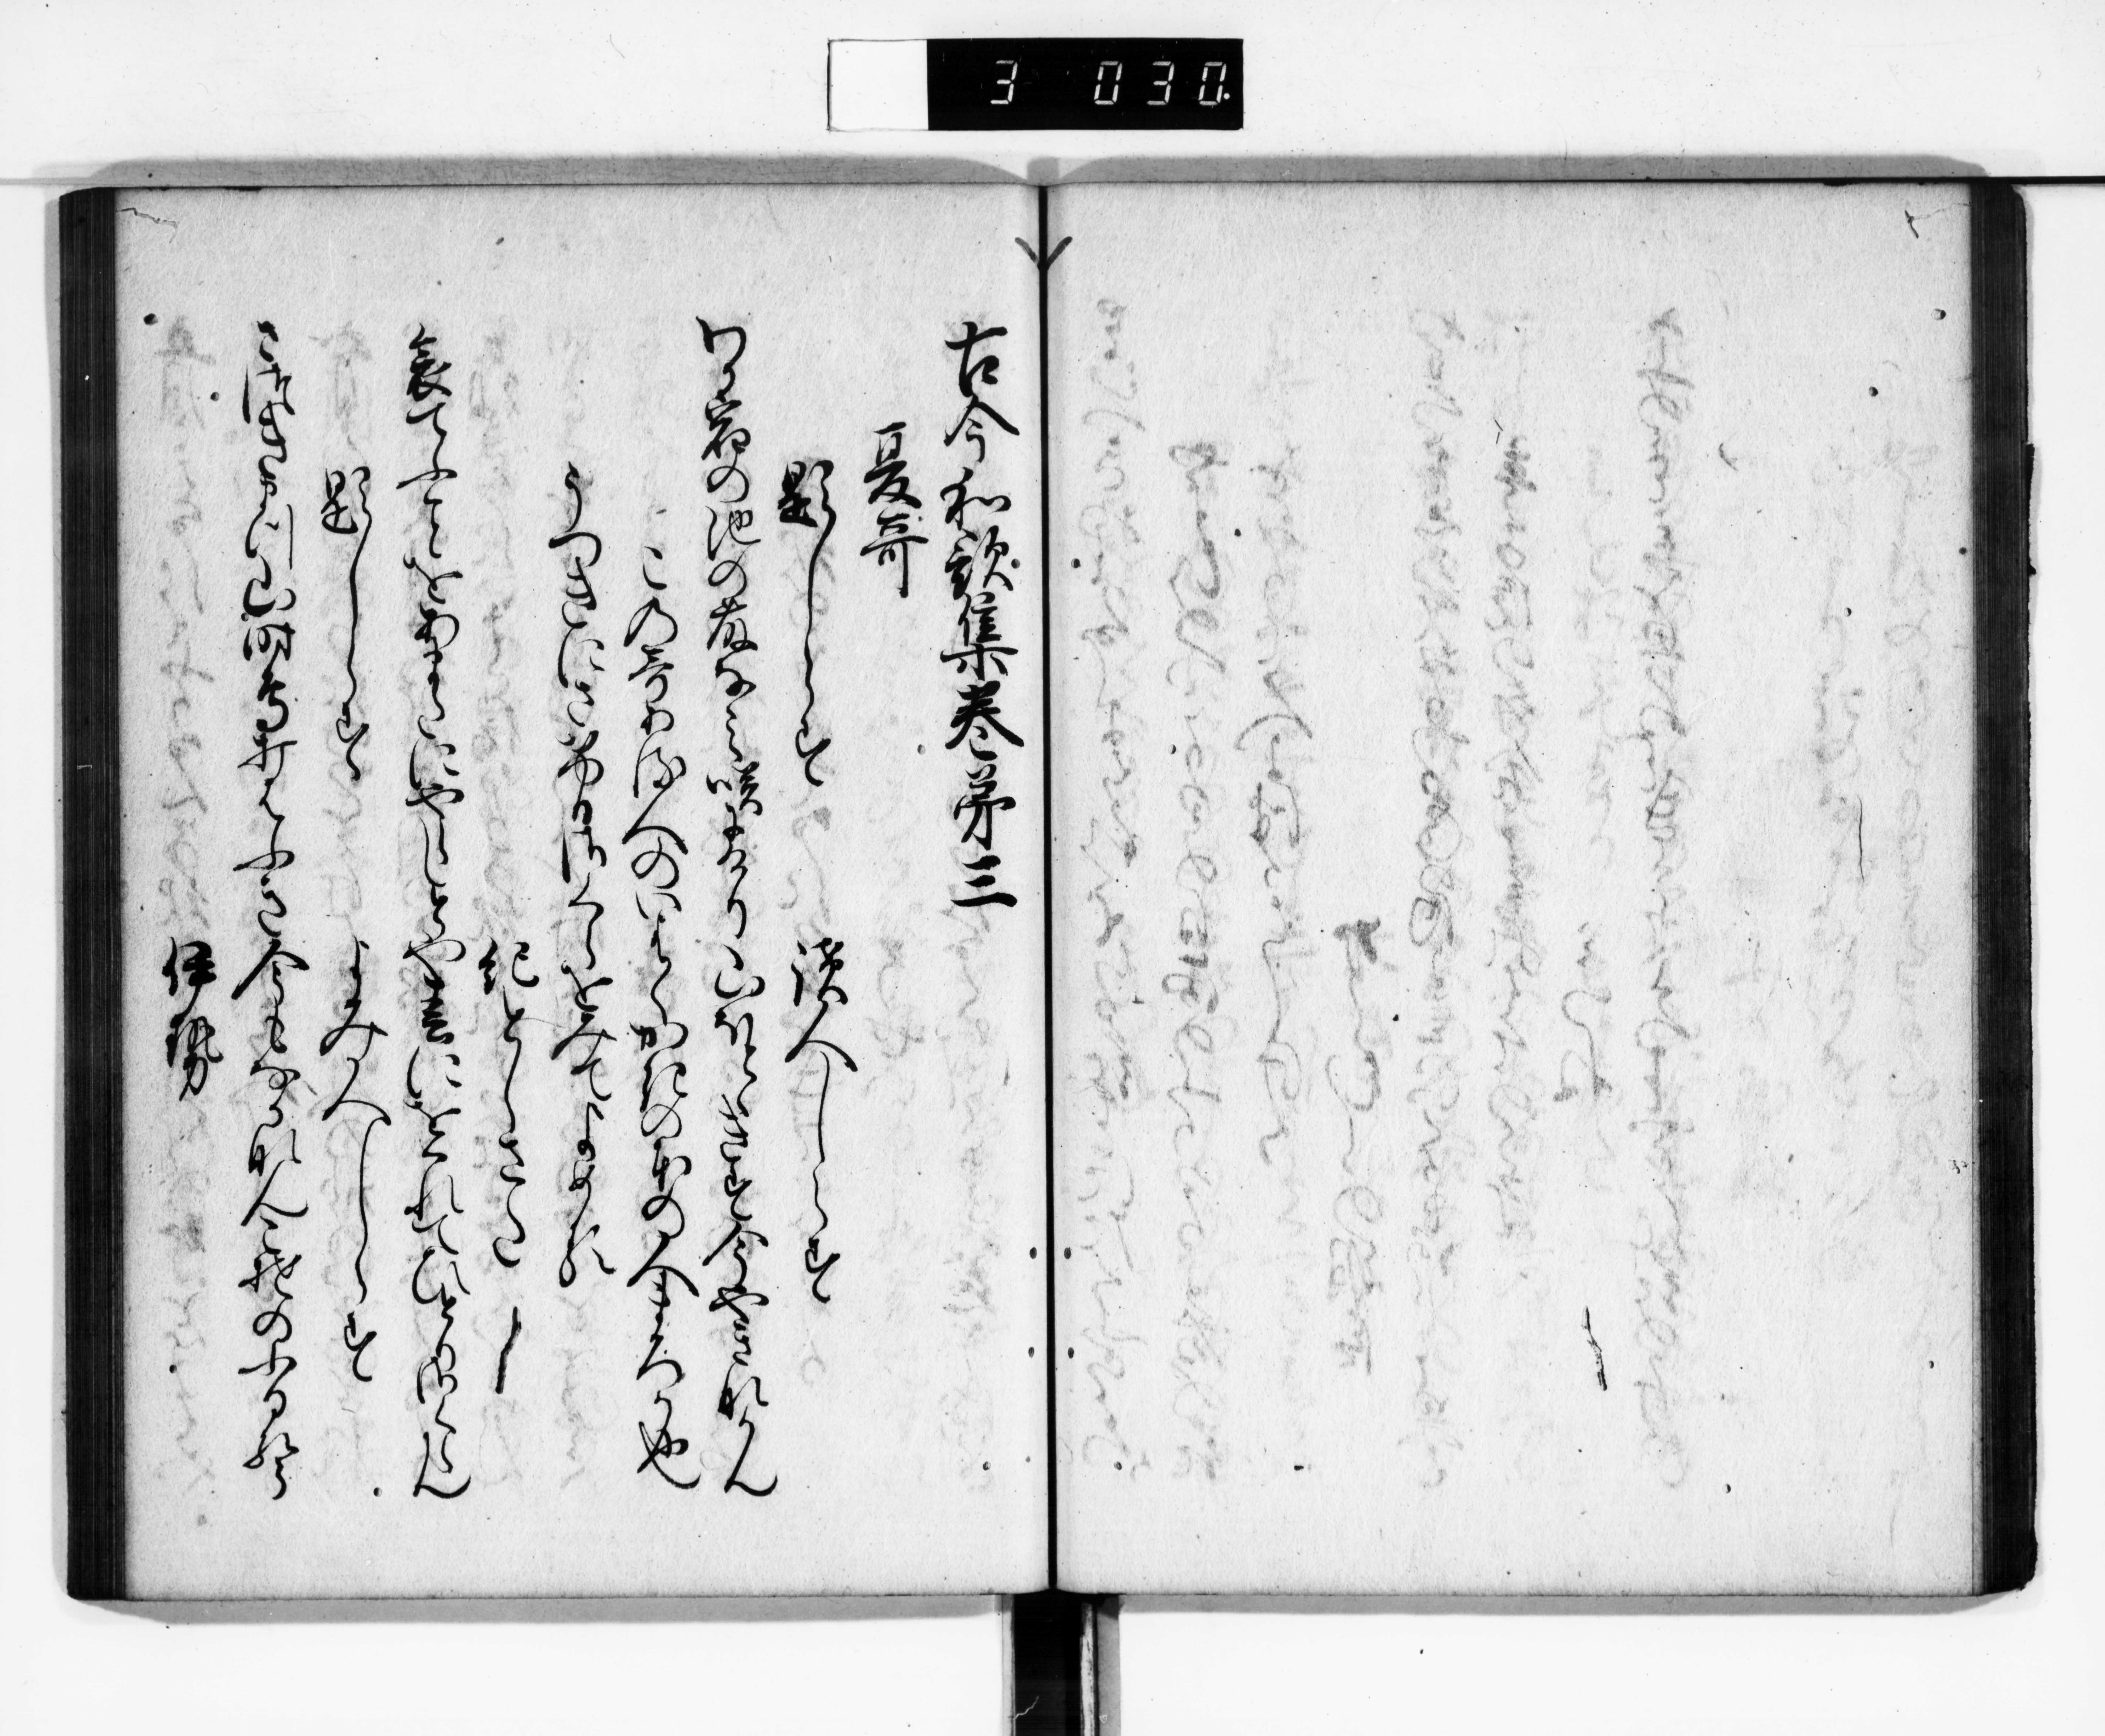 3 030
古今和歌集巻第三
夏哥
題しらす 読人しらす
わか宿の池の藤なみ咲にけり山ほとゝきす今やきなかん
この哥ある人のいはくかきのもとの人まろか也
うつきにさけるさくらをみてよめる
紀としさた
哀てふことをあまたにやらしとや春にをくれてひとりさくらん
題しらす よみ人しらす
さ月まつ山郭公うちはふき今もなかなんこそのふる声
伊勢